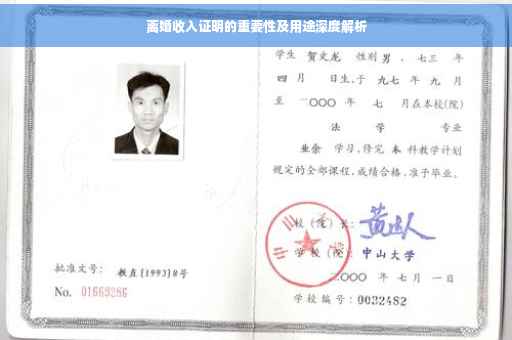 离婚收入证明的重要性及用途深度解析
学生 贺文龙 性别 男 、七三 年
四 月 日生,于 九七 年 九 月
至 二〇〇〇 年 七 月在本校(院)
法 学 专业
业余 学习,修完 本 科教学计划
规定的全部课程,成绩合格,准予毕业。
校(院)长:
学校(院): 中山大学
二〇〇〇 年 七 月 一 日
学校编号: 0032482
批准文号: 教直[1993]8号
No. 01663286